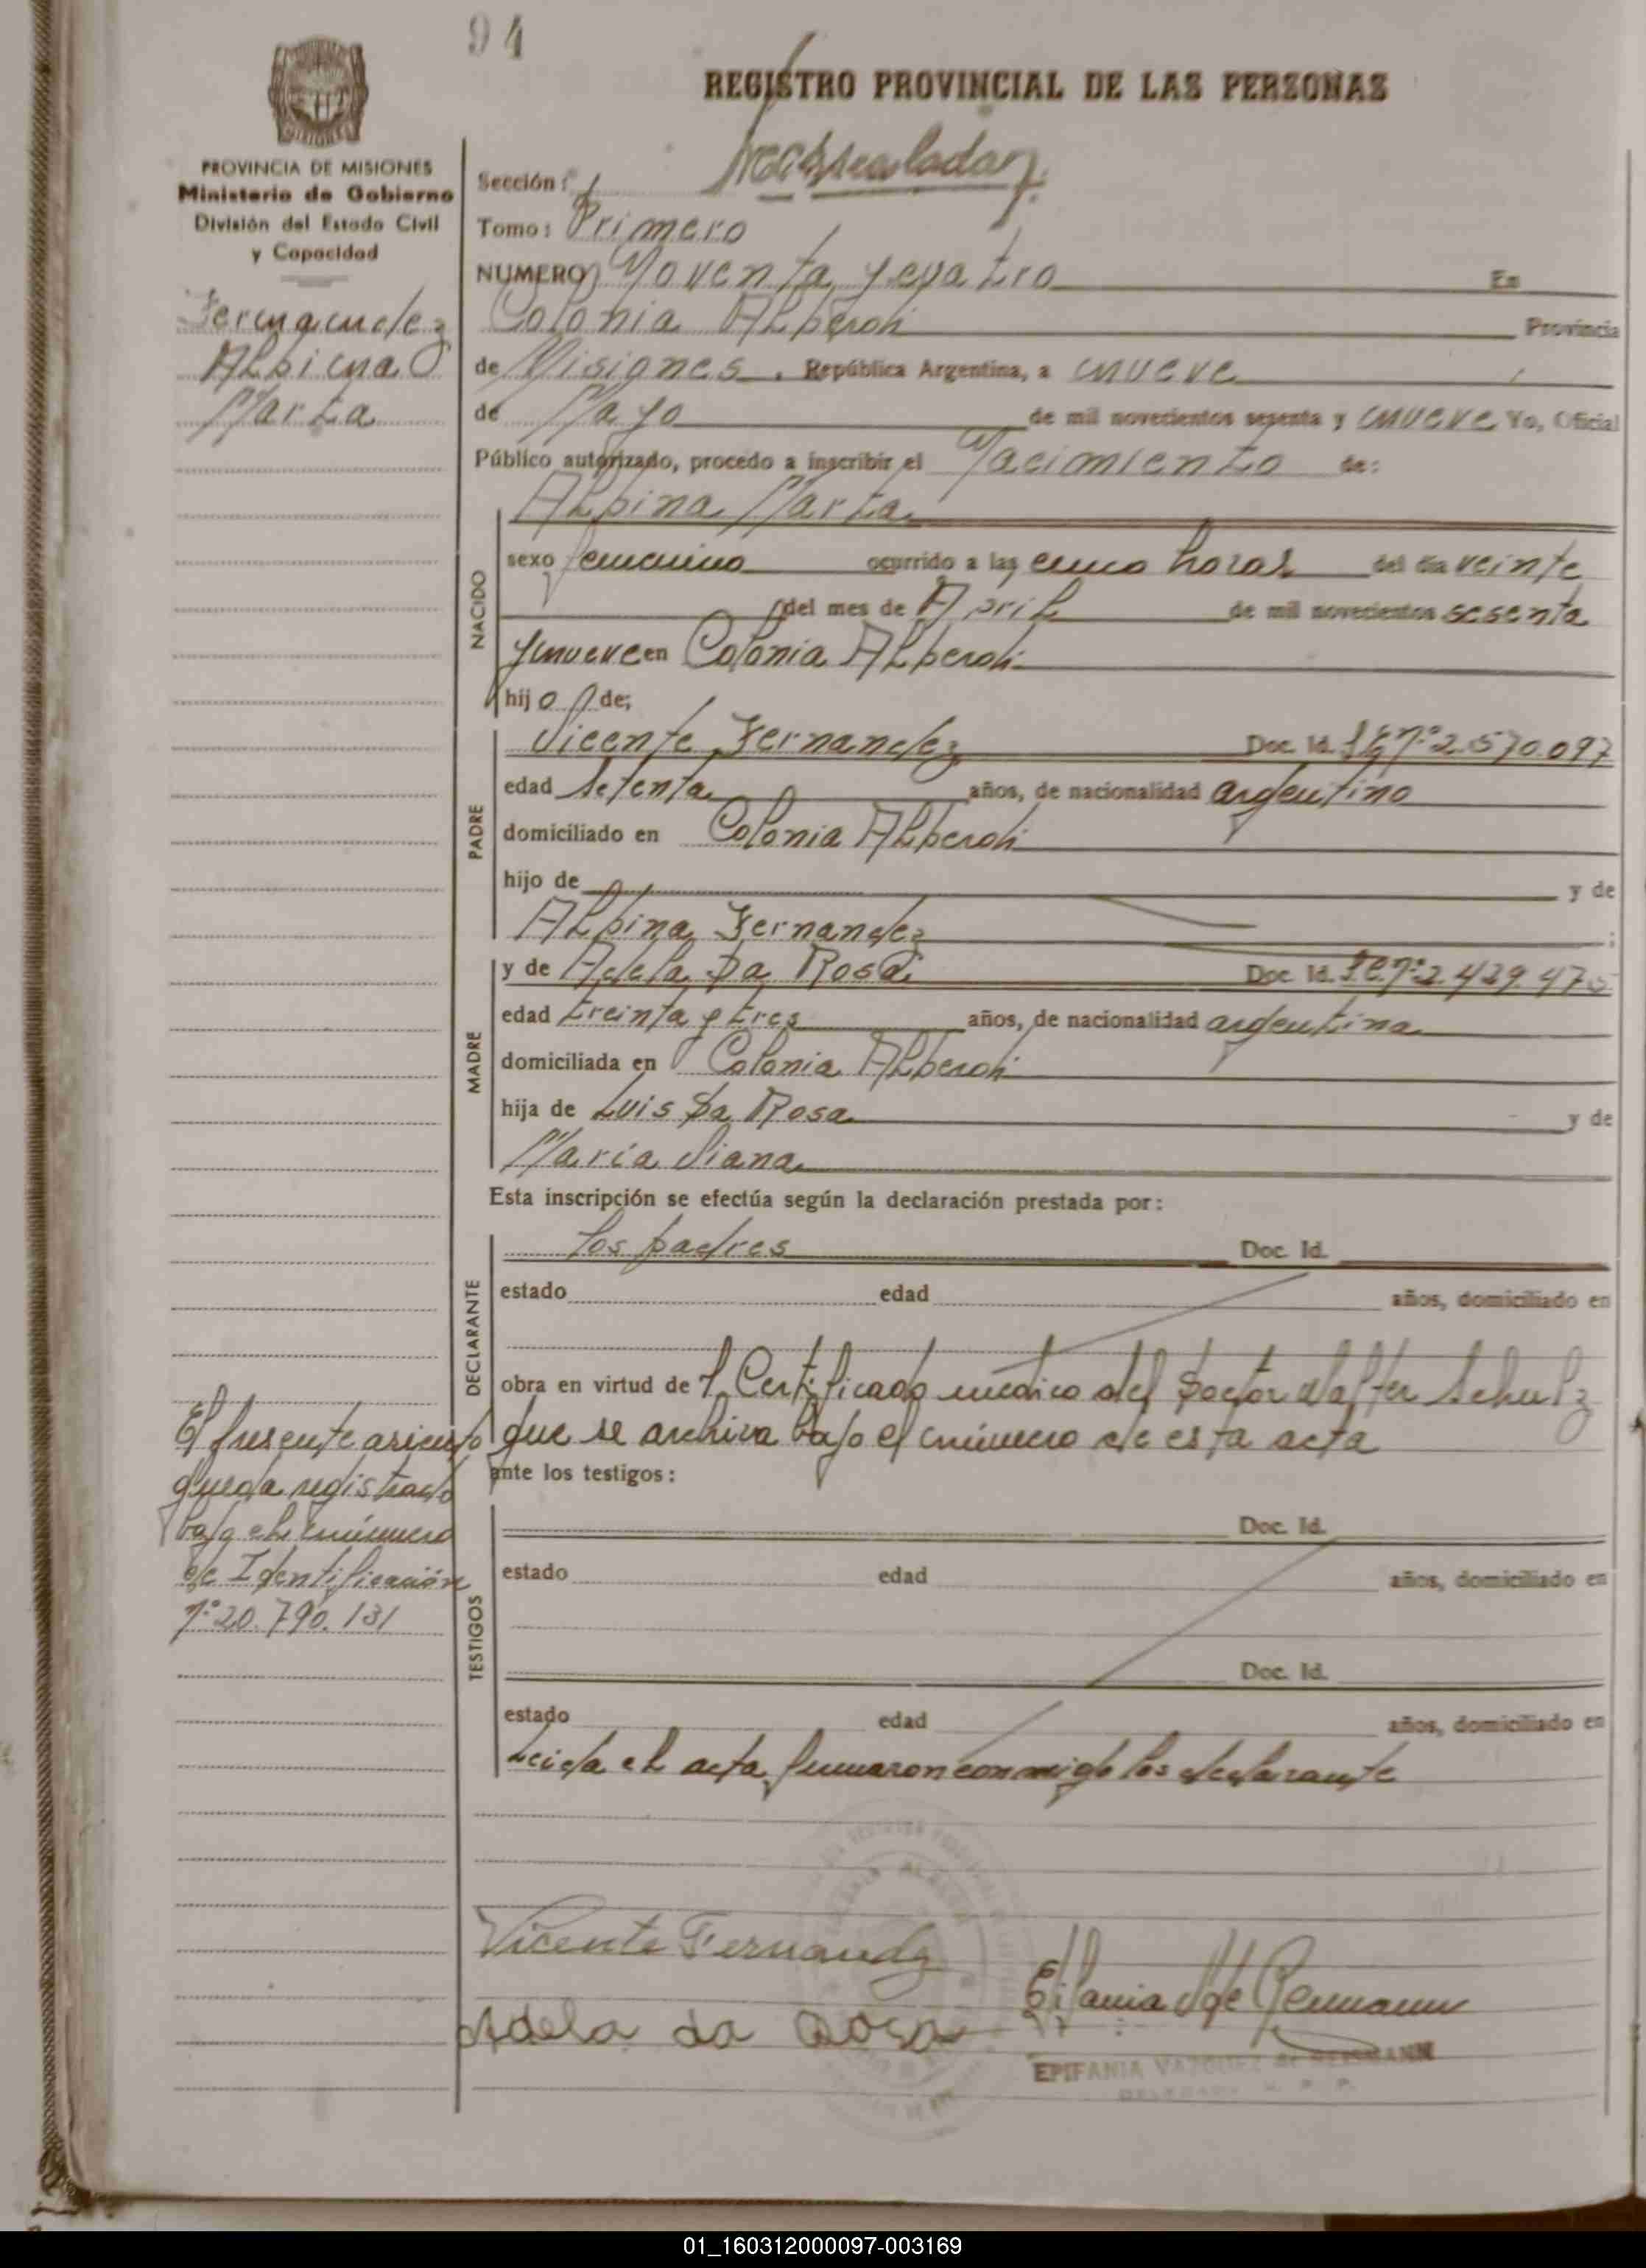 94
REGISTRO PROVINCIAL DE LAS PERSONAS
PROVINCIA DE MISIONES
Ministerio de Gobierno
División del Estado Civil
y Capacidad
Fernandez
Albina
Marta
Sección: 1
Tomo: Primero
NUMERO Noventa y cuatro En
Colonia Alberdi Provincia
de Misiones, República Argentina, a nueve
de Mayo de mil novecientos sesenta y nueve Yo, Oficial
Público autorizado, procedo a inscribir el Nacimiento de:
NACIDO
Albina Marta
sexo femenino ocurrido a las cinco horas del día veinte
del mes de Abril de mil novecientos sesenta
y nueve en Colonia Alberdi
hij a de;
PADRE
Vicente Fernandez Doc. Id. nº 2.570.097
edad setenta años, de nacionalidad argentino
domiciliado en Colonia Alberdi
hijo de y de
Albina Fernandez ;
MADRE
y de Adela Da Rosa Doc. Id. nº 2.429.47
edad treinta y tres años, de nacionalidad argentina
domiciliada en Colonia Alberdi
hija de Luis Da Rosa y de
María Viana
Esta inscripción se efectúa según la declaración prestada por:
DECLARANTE
los padres Doc. Id.
estado edad años, domiciliado en
obra en virtud de 1 Certificado médico del Doctor Walter Schulz
que se archiva bajo el número de esta acta
ante los testigos:
El presente asiento
queda registrado
bajo el número
de Identificación
nº 20.790.131
TESTIGOS
Doc. Id.
estado edad años, domiciliado en
Doc. Id.
estado edad años, domiciliado en
Leida el acta firmaron conmigo los declarante
Vicente Fernandz
Adela da Rosa
Epifania V de Reumann
EPIFANIA VAZQUEZ de
01_160312000097-003169